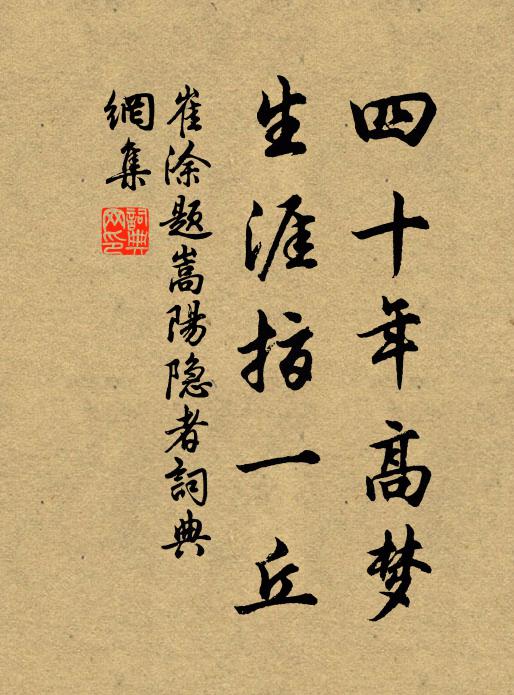 四十年高梦
生涯指一丘
崔涂题嵩陽隐者詞典
網集
詞典网印